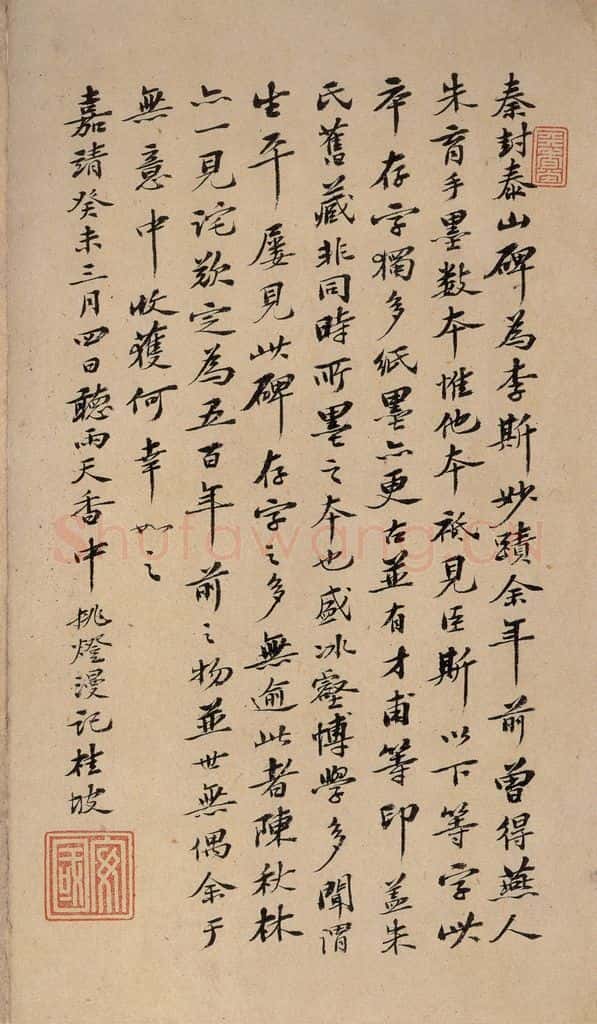 秦封泰山碑為李斯妙蹟余年前曾得燕人
朱育手墨数本惟他本祇見臣斯以下等字此
本存字獨多紙墨亦更古並有才甫等印盖朱
氏舊藏非同時所墨之本也盛冰壑博學多聞謂
生平屡見此碑存字之多無逾此者陳秋林
亦一見詫歎定為五百年前之物並世無偶余于
無意中收獲何幸如之
嘉靖癸未三月四日聽雨天香中挑燈漫記桂坡
安國
Shufawang.CN